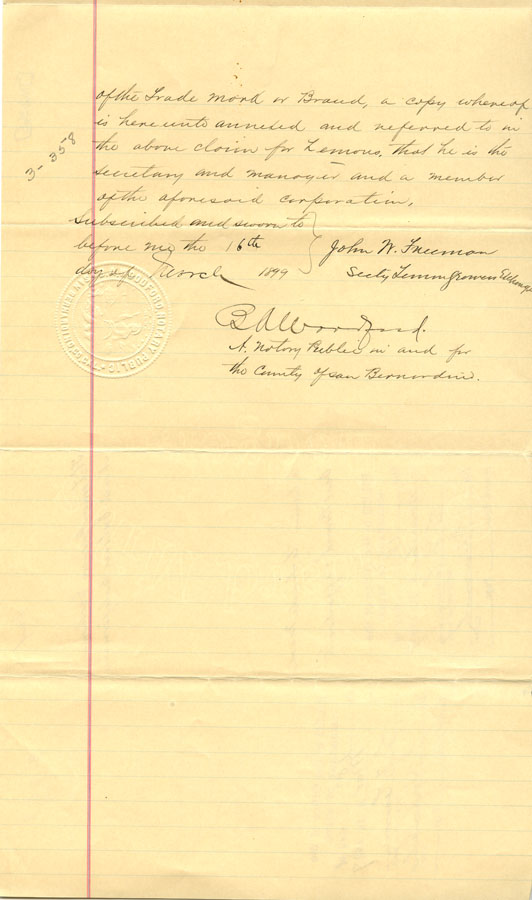 of the Trade Mark or Brand, a copy whereof
is hereunto annexed and referred to in
the above claim for Lemons, that he is the
secretary and manager and a member
of the aforesaid corporation.
Subscribed and sworn to
before me the 16th
day of March 1899
John W. Freeman
Secty Lemon Growers Exchange
B A Woodford.
A Notary Public in and for
the County of San Bernardino.
3-358
NOTARY PUBLIC